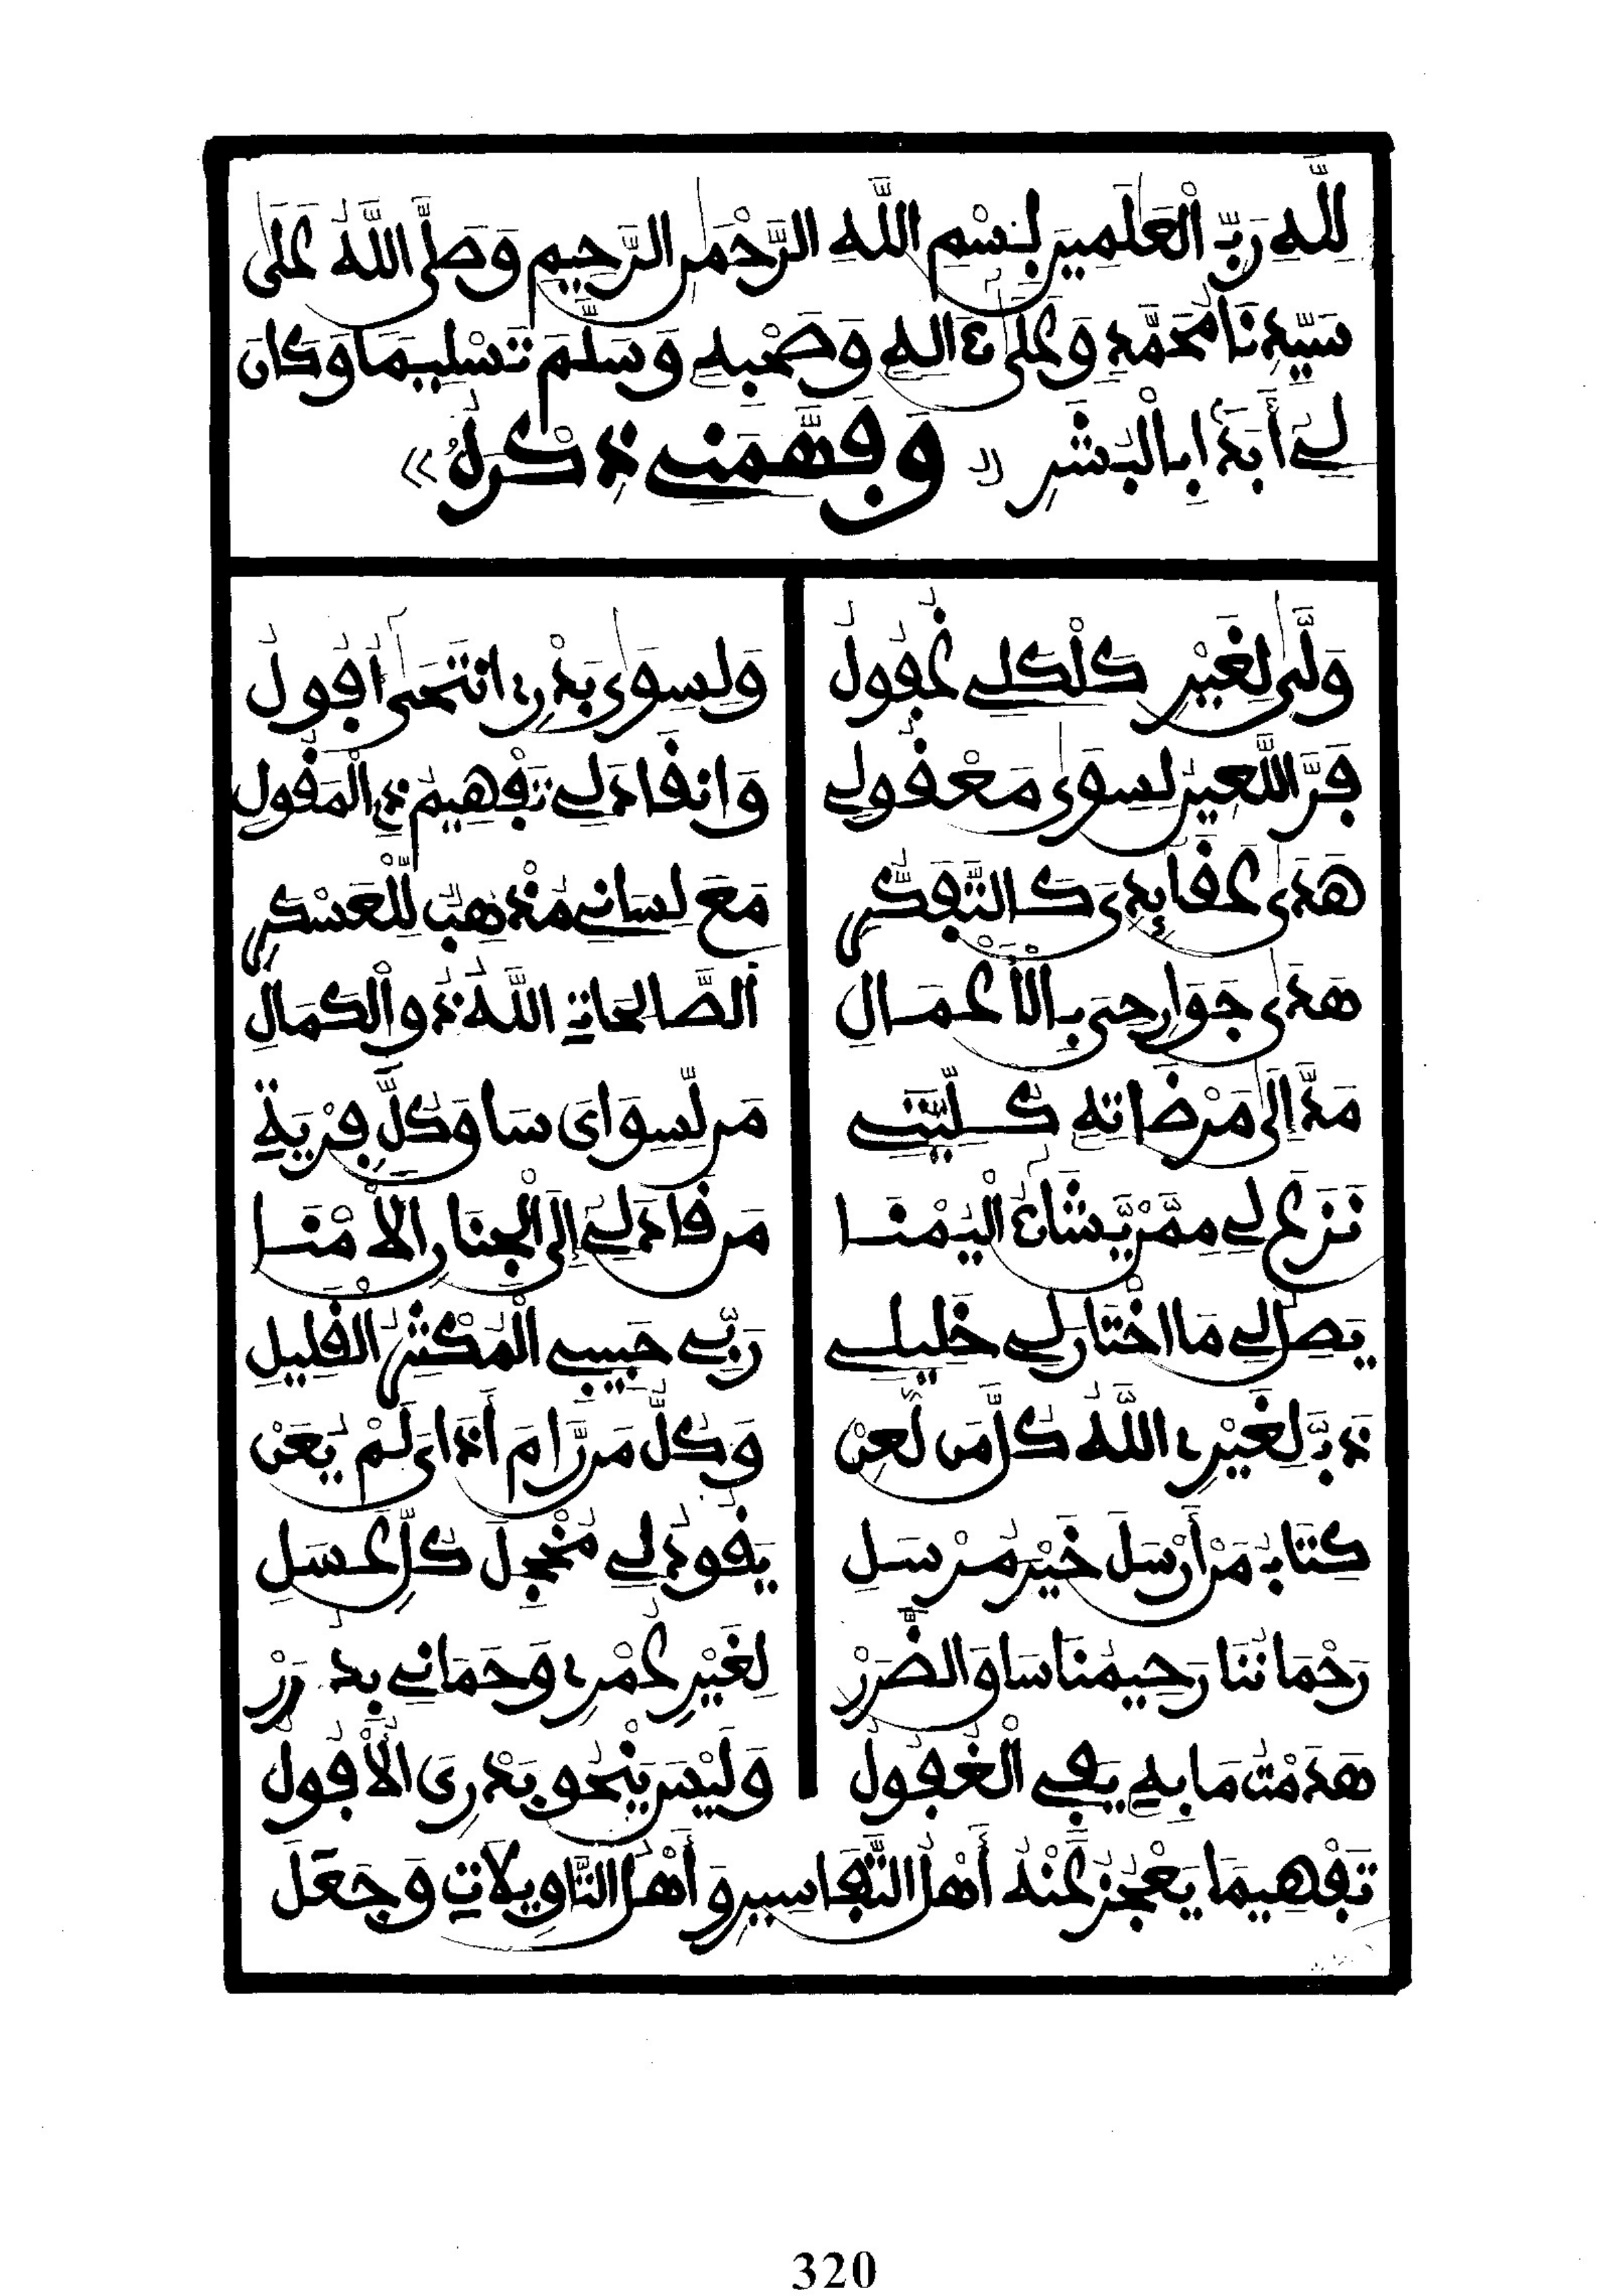 لِلَّهِ رَبِّ الْعَلَمِينَ بِسْمِ اللَّهِ الرَّحْمَنِ الرَّحِيمِ وَصَلَّى اللَّهُ عَلَى
سَيِّدِنَا مُحَمَّدٍ وَعَلَى ءَالِهِ وَصَحْبِهِ وَسَلَّمَ تَسْلِيمًا وَكَانَ
لِي أَبَدًا بِالْبَشَرِ «وَفَهَّمَنِي ذِكْرَهُ»
وَلَّى لِغَيْرِ كَلْكَلِي عُقُولُ وَلِسِوَى بَدْرِي انْتَحَى أُفُولُ
فَرَّ اللَّعِينُ لِسِوَى مَعْقُولِي وَانْقَادَ لِي تَفْهِيمُ ذِي الْمَقُولِ
هَدَى عَقَائِدِي كَـ التَّفَكُّرِ مَعَ لِسَانِي مُذْهِبٌ لِلْعَسْكَرِ
هَدَى جَوَارِحِي بِالْأَعْمَالِ الصَّالِحَاتِ اللَّهُ ذُو الْكَمَالِ
مَدَّ إِلَى مَرْضَاتِهِ كُلِّيَّتِي مَن لِّسِوَايَ سَاقَ كُلَّ فِرْيَةِ
نَزَعَ لِي مِمَّنْ يَشَاءُ الْيُمْنَا مَن قَادَ لِي إِلَى الْجِنَانِ الْأَمْنَا
يَصِلُ لِي مَا اخْتَارَ لِي خَلِيلِي رَبِّي حَبِيبِي الْمُكْثِرُ الْقَلِيلِ
ذَبَّ لِغَيْرِي اللَّهُ كُلَّ مَن لُّعِنْ وَكُلُّ مَن رَّامَ أَذَايَ لَمْ يُعَنْ
كِتَابُ مَنْ أَرْسَلَ خَيْرَ مُرْسَلِ يَقُودُ لِي مُخْجِلَ كُلِّ عَسَلِ
رَحْمَانُنَا رَحِيمُنَا سَاقَ الضَّرَرْ لِغَيْرِ عُمْرِي وَحَمَانِي بِدُرَرْ
هَدَمْتُ مَا بِهِ يَفِي الْغُفُولُ وَلَيْسَ يَنْحُو بَدْرِيَ الْأُفُولُ
تَفْهِيمًا يَعْجُزُ عَنْهُ أَهْلُ التَّفَاسِيرِ وَأَهْلُ التَّاوِيلَاتِ وَجَعَلَ
320